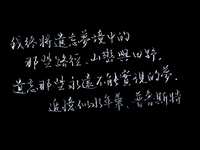 我終將遺忘夢境中的
那些路徑、山巒與田野,
遺忘那些永遠不能實現的夢.
追憶似水年華．普魯斯特